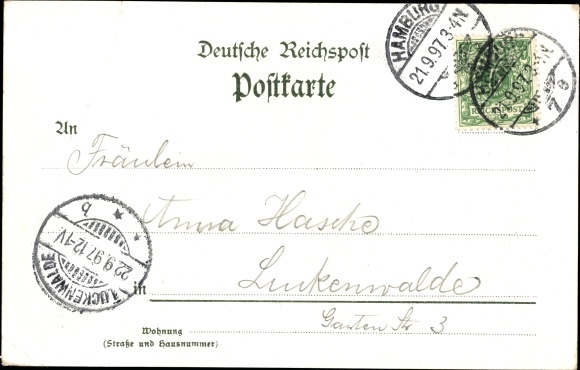 HAMBURG
21.9.97.3-4N
7
HAMBURG
21.9.97.3-4N
7 e
REICHSPOST
Deutsche Reichspost
Postkarte
An
Fräulein
Anna Hasche
Luckenwalde
in
Garten Str. 3
Wohnung
(Straße und Hausnummer)
LUCKENWALDE
22.9.97.12-1V
b